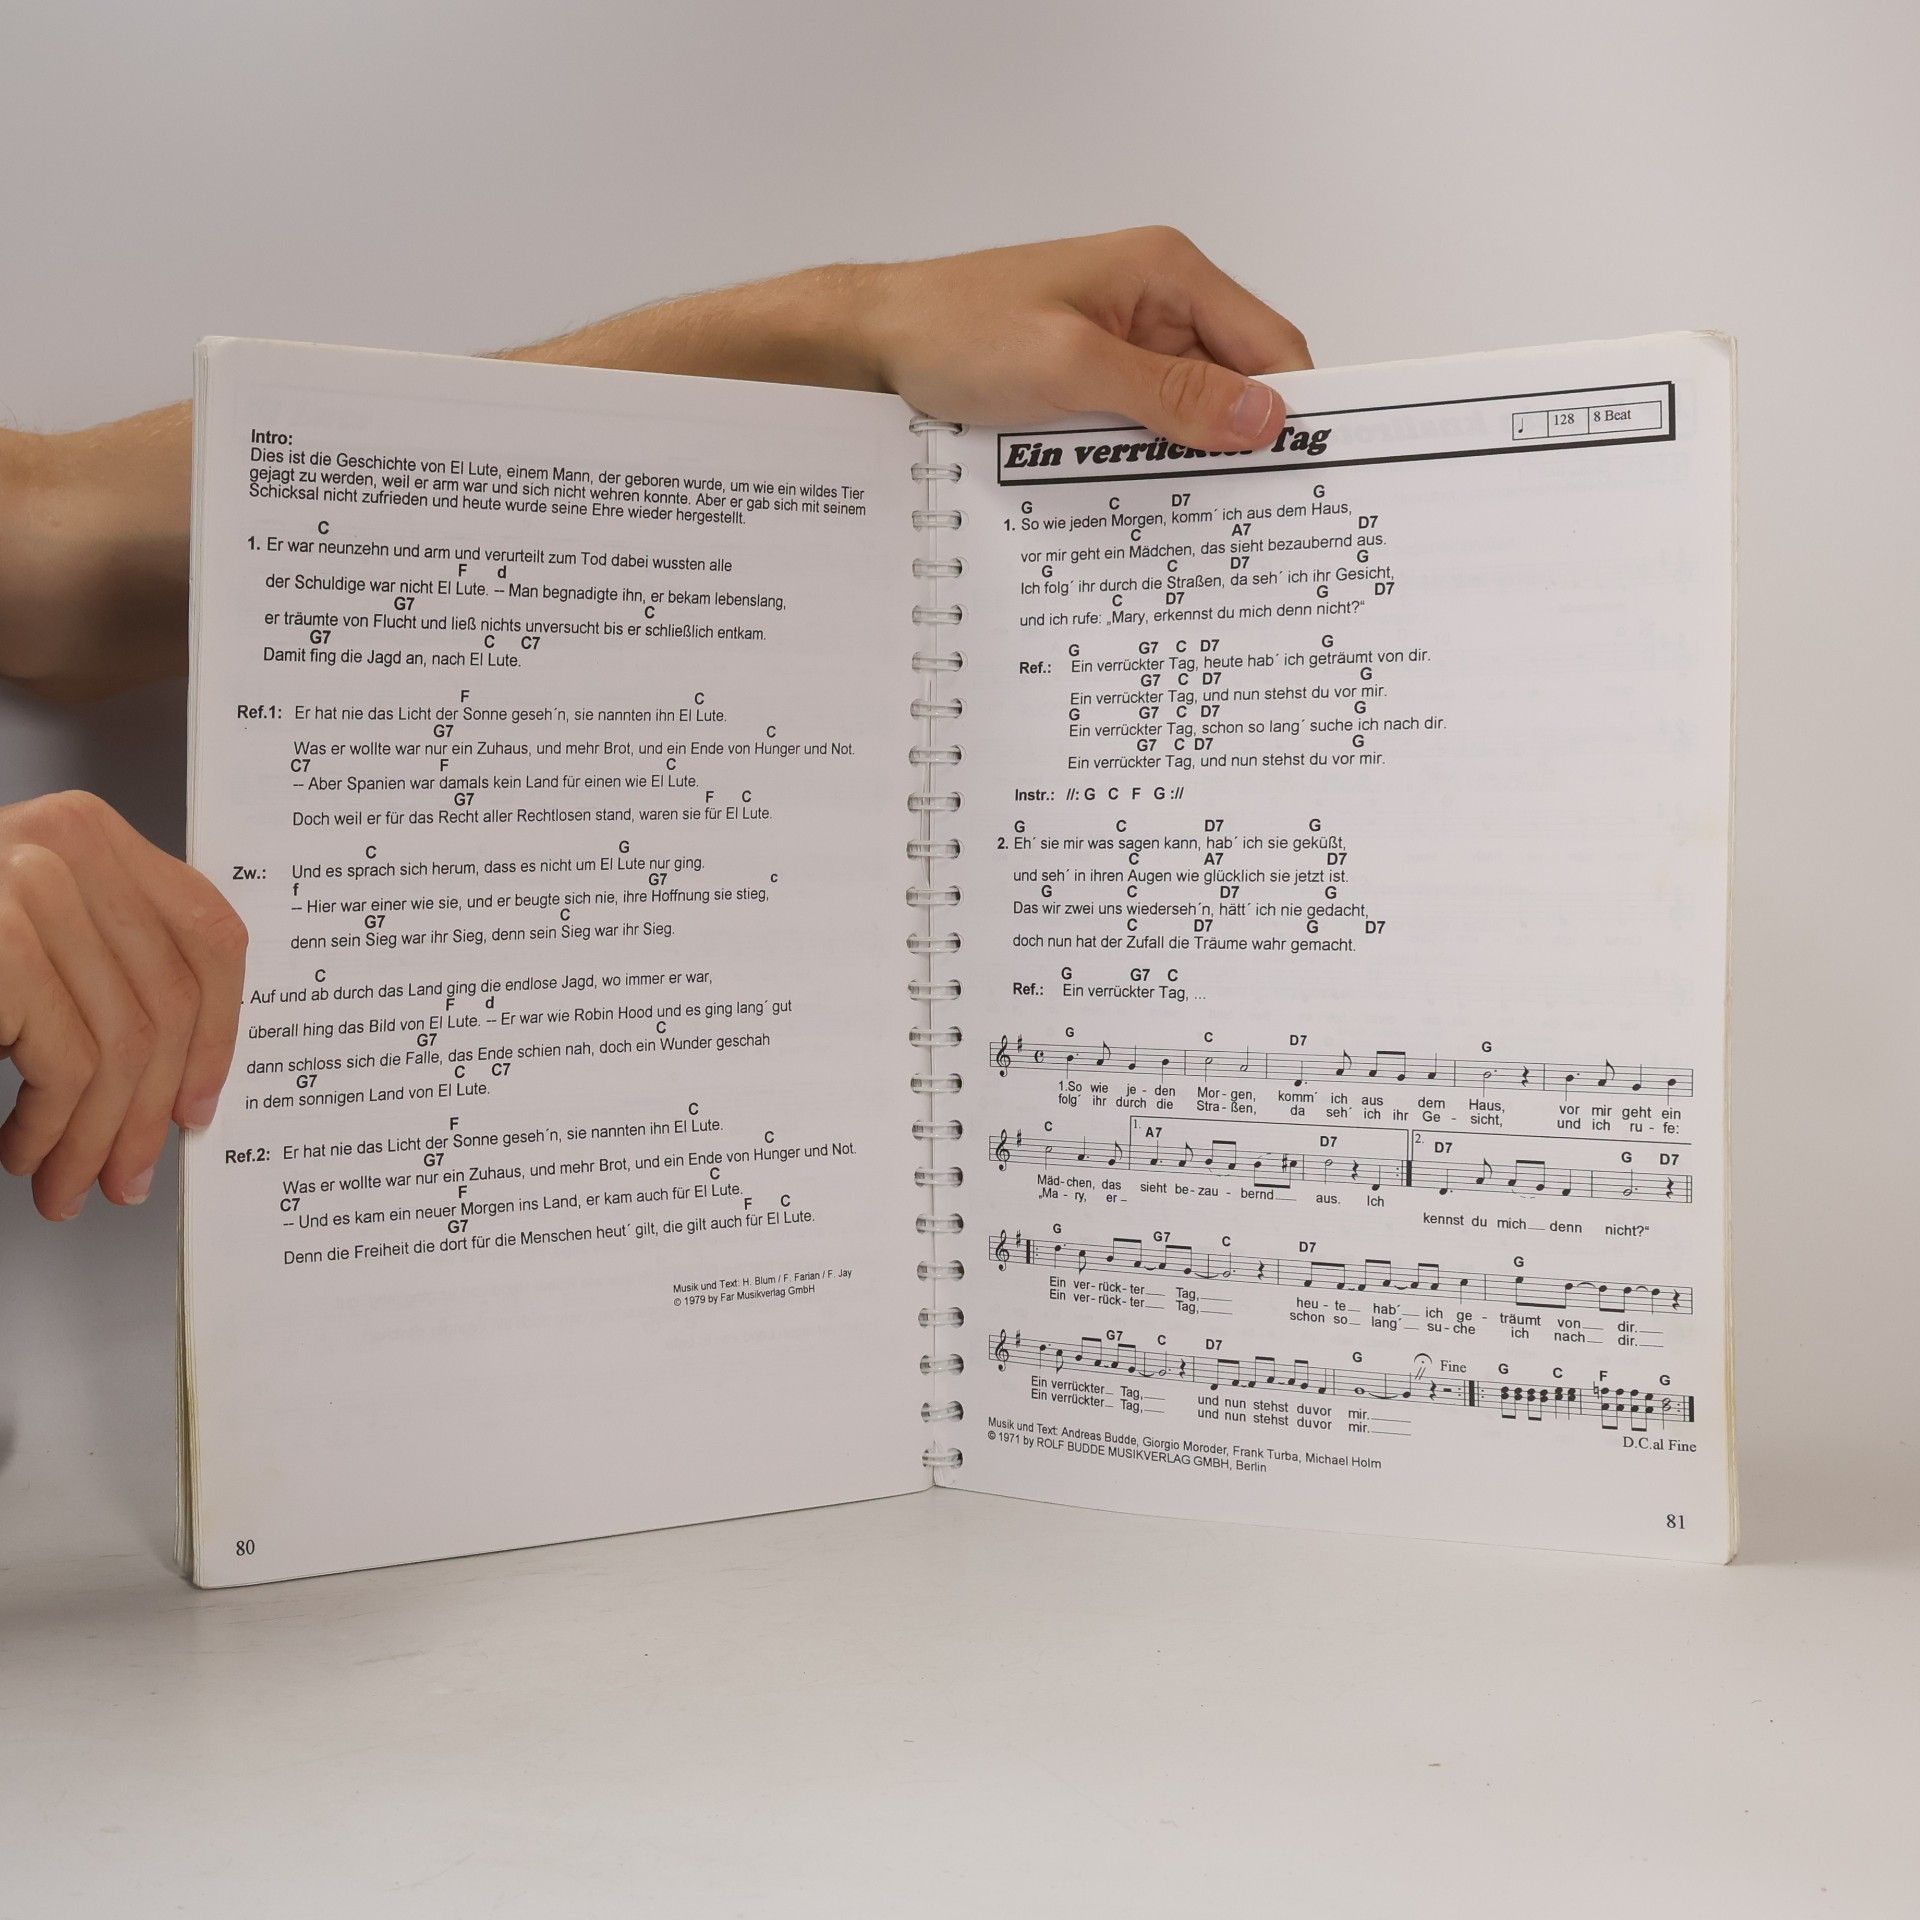 Intro:
Dies ist die Geschichte von El Lute, einem Mann, der geboren wurde, um wie ein wildes Tier
gejagt zu werden, weil er arm war und sich nicht wehren konnte. Aber er gab sich mit seinem
Schicksal nicht zufrieden und heute wurde seine Ehre wieder hergestellt.
C
1. Er war neunzehn und arm und verurteilt zum Tod dabei wussten alle
F d
der Schuldige war nicht El Lute. -- Man begnadigte ihn, er bekam lebenslang,
G7 C
er träumte von Flucht und ließ nichts unversucht bis er schließlich entkam.
G7 C C7
Damit fing die Jagd an, nach El Lute.
F C
Ref.1: Er hat nie das Licht der Sonne geseh´n, sie nannten ihn El Lute.
G7 C
Was er wollte war nur ein Zuhaus, und mehr Brot, und ein Ende von Hunger und Not.
C7 F C
-- Aber Spanien war damals kein Land für einen wie El Lute.
G7 F C
Doch weil er für das Recht aller Rechtlosen stand, waren sie für El Lute.
C G
Zw.: Und es sprach sich herum, dass es nicht um El Lute nur ging.
f G7 c
-- Hier war einer wie sie, und er beugte sich nie, ihre Hoffnung sie stieg,
G7 C
denn sein Sieg war ihr Sieg, denn sein Sieg war ihr Sieg.
C
. Auf und ab durch das Land ging die endlose Jagd, wo immer er war,
F d
überall hing das Bild von El Lute. -- Er war wie Robin Hood und es ging lang´ gut
G7 C
dann schloss sich die Falle, das Ende schien nah, doch ein Wunder geschah
G7 C C7
in dem sonnigen Land von El Lute.
F C
Ref.2: Er hat nie das Licht der Sonne geseh´n, sie nannten ihn El Lute.
G7 C
Was er wollte war nur ein Zuhaus, und mehr Brot, und ein Ende von Hunger und Not.
C7 F C
-- Und es kam ein neuer Morgen ins Land, er kam auch für El Lute.
G7 F C
Denn die Freiheit die dort für die Menschen heut´ gilt, die gilt auch für El Lute.
Musik und Text: H. Blum / F. Farian / F. Jay
© 1979 by Far Musikverlag GmbH
80
Ein Tag
128 8 Beat
G C D7 G
1. So wie jeden Morgen, komm´ ich aus dem Haus,
C A7 D7
vor mir geht ein Mädchen, das sieht bezaubernd aus.
G C D7 G
Ich folg´ ihr durch die Straßen, da seh´ ich ihr Gesicht,
C D7 G D7
und ich rufe: „Mary, erkennst du mich denn nicht?“
G G7 C D7 G
Ref.: Ein verrückter Tag, heute hab´ ich geträumt von dir.
G7 C D7 G
Ein verrückter Tag, und nun stehst du vor mir.
G G7 C D7 G
Ein verrückter Tag, schon so lang´ suche ich nach dir.
G7 C D7 G
Ein verrückter Tag, und nun stehst du vor mir.
Instr.: //: G C F G ://
G C D7 G
2. Eh´ sie mir was sagen kann, hab´ ich sie geküßt,
C A7 D7
und seh´ in ihren Augen wie glücklich sie jetzt ist.
G C D7 G
Das wir zwei uns wiederseh´n, hätt´ ich nie gedacht,
C D7 G D7
doch nun hat der Zufall die Träume wahr gemacht.
G G7 C
Ref.: Ein verrückter Tag, ...
G C D7 G
1.So wie je - den Mor - gen, komm´ ich aus dem Haus, vor mir geht ein
folg´ ihr durch die Stra - ßen, da seh´ ich ihr Ge - sicht, und ich ru - fe:
C 1. A7 D7 2. D7 G D7
Mäd - chen, das sieht be - zau - bernd aus. Ich
„Ma - ry, er - kennst du mich denn nicht?“
G G7 C D7 G
Ein ver - rück - ter Tag, heu - te hab´ ich ge - träumt von dir.
Ein ver - rück - ter Tag, schon so lang´ su - che ich nach dir.
G7 C D7 G Fine G C F G
Ein verrückter Tag, und nun stehst duvor mir.
Ein verrückter Tag, und nun stehst duvor mir.
D.C.al Fine
Musik und Text: Andreas Budde, Giorgio Moroder, Frank Turba, Michael Holm
© 1971 by ROLF BUDDE MUSIKVERLAG GMBH, Berlin
81